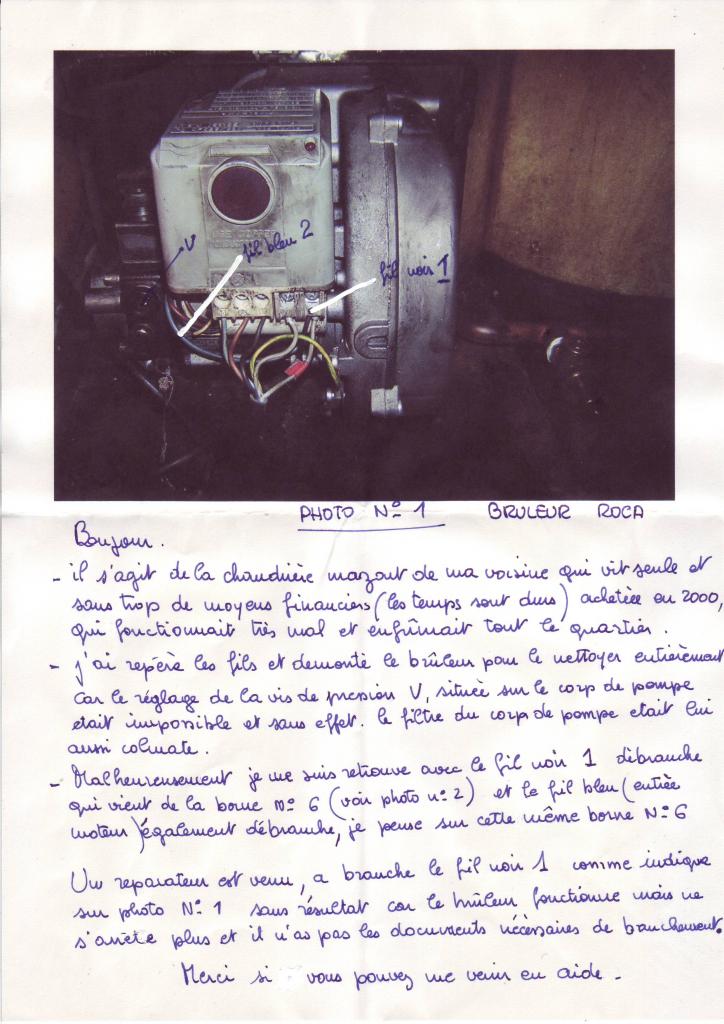 V
fil bleu 2
fil noir 1
PHOTO N° 1 BRULEUR ROCA
Boujour.
- il s'agit de la chaudière mazout de ma voisine qui vit seule et
sans trop de moyens financiers (les temps sont durs) achetée en 2000,
qui fonctionnait très mal et enfûmait tout le quartier.
- j'ai repèrè les fils et demontè le brûleur pour le nettoyer entièrement
car le règlage de la vis de pression V, situèe sur le corp de pompe
etait impossible et sans effet. le filtre du corp de pompe etait lui
aussi colmate.
- Malheureusement je me suis retrouve avec le fil noir 1 dèbranche
qui vient de la borne N° 6 (voir photo n° 2) et le fil bleu (entrèe
moteur) ègalement dèbranche, je pense sur cette même borne N° 6
Un reparateur est venu, a branche le fil noir 1 comme indique
sur photo N° 1 sans rèsultat car le brûleur fonctionne mais ne
s'arrète plus et il n'as pas les documents nècèssaires de branchement.
Merci si vous pouvez me venir en aide -